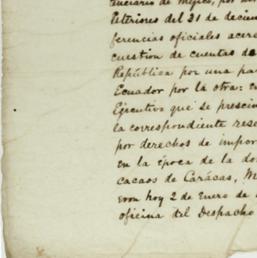 tenciario de Méjico, por
teriores del 31 de decien
ferencias oficiales acer
cuestion de cuentas de
República por una pa
Ecuador por la otra: c
Ejecutiva que se prescin
la correspondiente res
por derechos de impor
en la época de la do
cacaos de Carácas, M
von hoy 2 de Enero de
oficina del Despacho